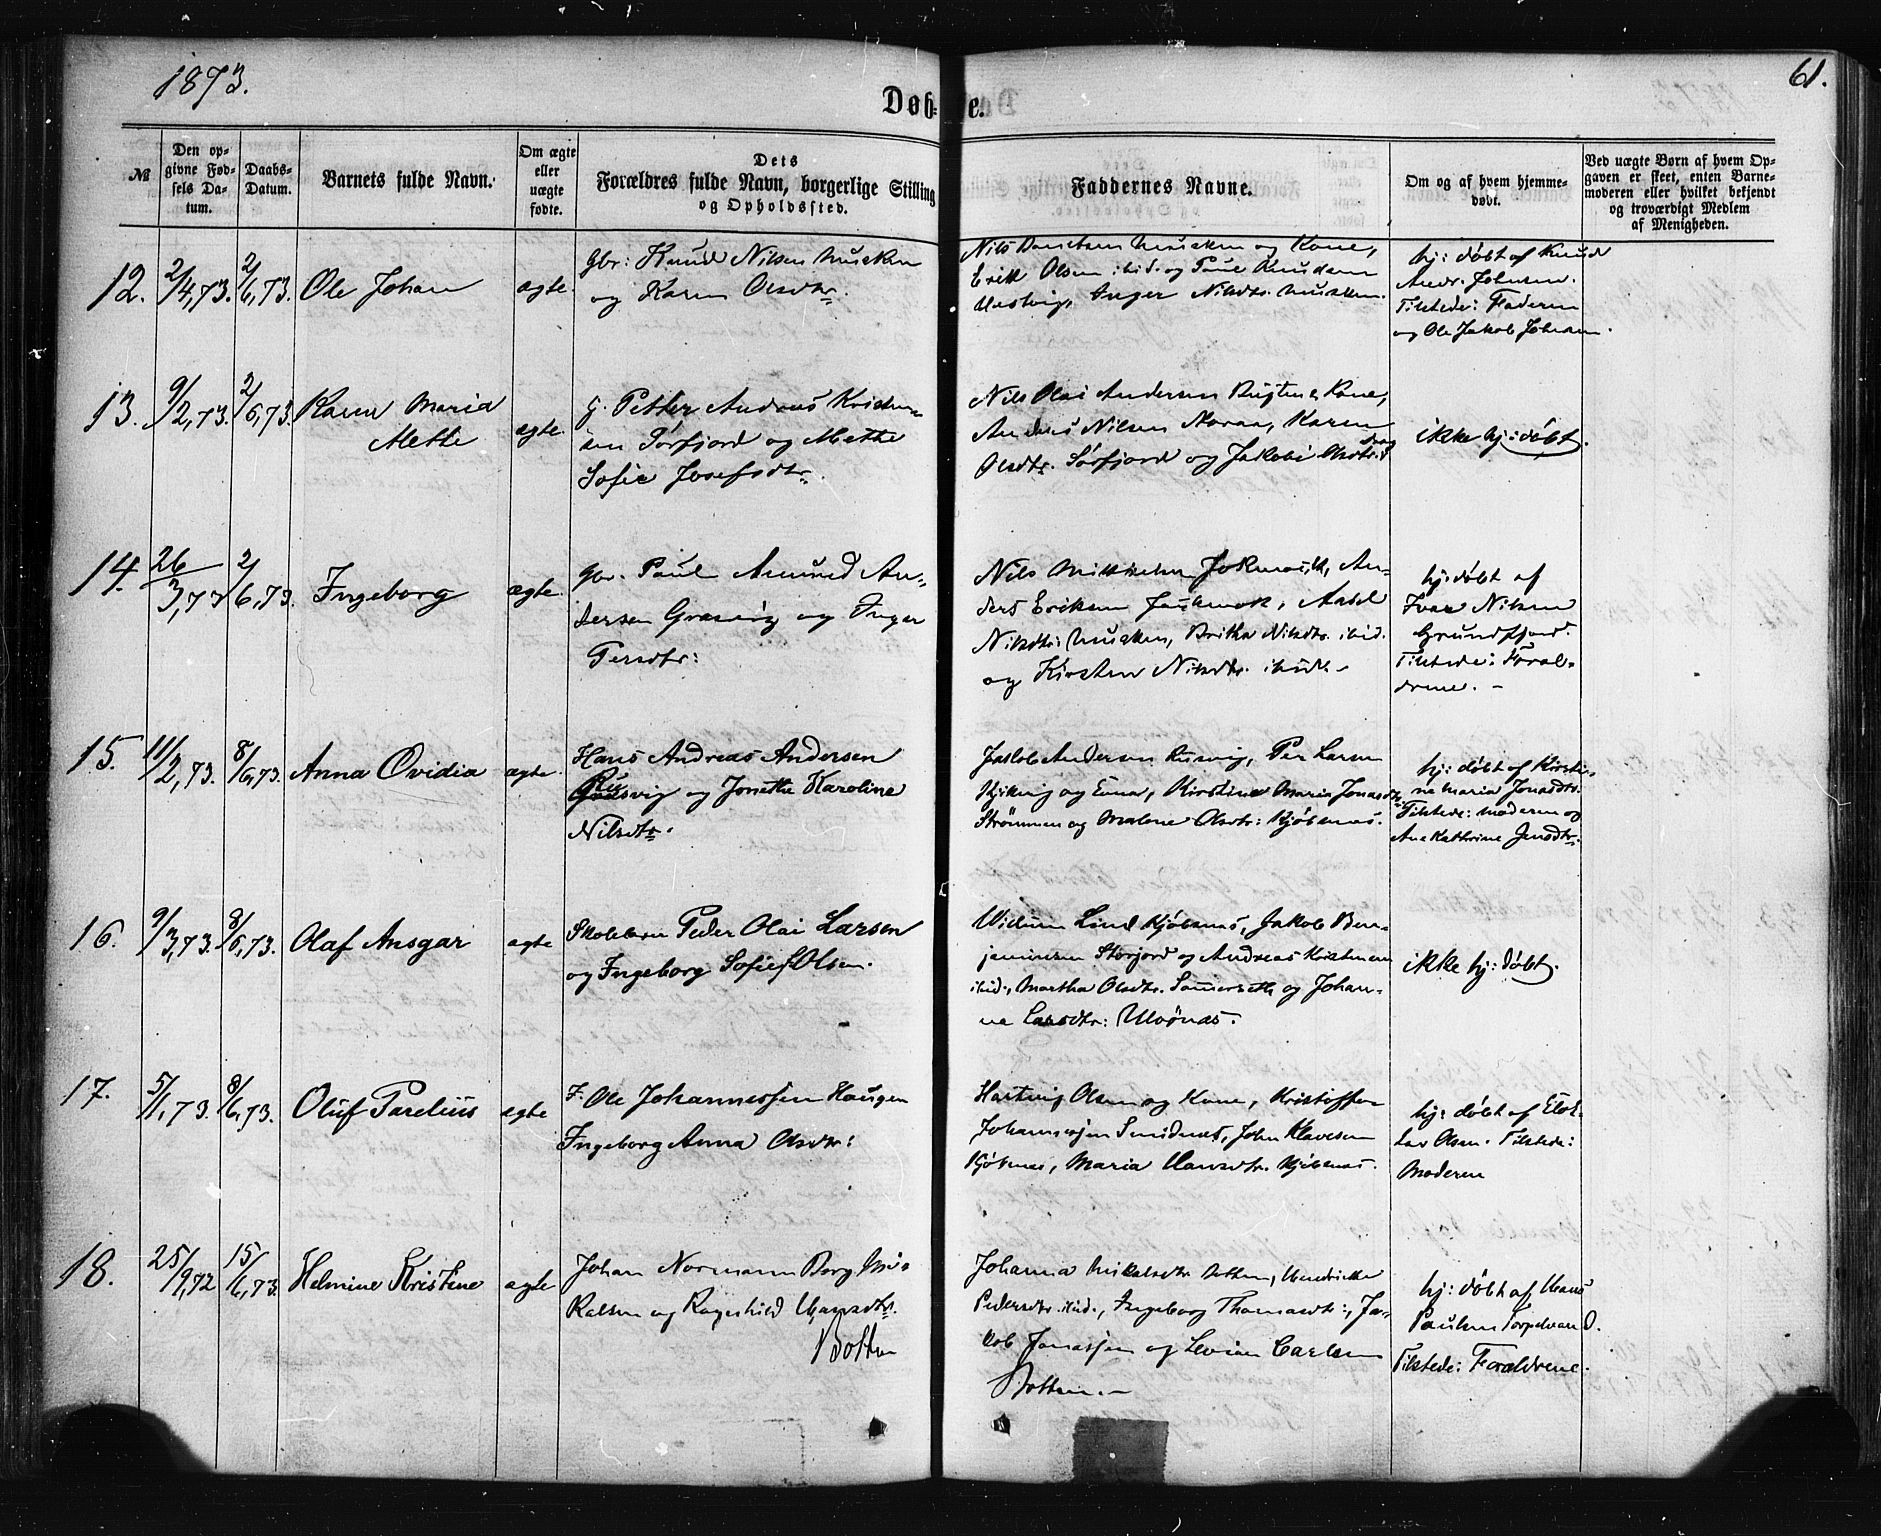 1873.
Døbte.
61.
№
Den opgivne Fødsels Datum.
Daabs-Datum.
Barnets fulde Navn.
Om ægte eller uægte fødte.
Dets Forældres fulde Navn, borgerlige Stilling og Opholdssted.
Faddernes Navne.
Om og af hvem hjemmedøbt.
Ved uægte Børn af hvem Opgaven er skeet, enten Barnemoderen eller hvilket bekjendt og troværdigt Medlem af Menigheden.
12. 2/4,73. 2/6,73. Ole Johan ægte
Gbr: Knud Nilsen Musken
og Karen Olsdtr.
Nils Danielsen Musken og Kone,
Erik Olsen ibid. og Paul Knudsen
Hestvig, Inger Nilsdtr. Musken.
hj: døbt af Knud
Andr. Johnsen.
Tilstede: Faderen
og Ole Jakob Johnsen.
13. 9/2,73. 2/6,73. Karen Maria
Mette
ægte.
G. Petter Andreas Kristen-
sen Sørfjord og Mette
Sofie Josefsdtr.
Nils Olai Andersen og Kone,
Anders Nilsen Noraa, Karen
Olsdtr. Sørfjord og Jakobi Olsdtr.
ikke hj: døbt.
14. 26/3,73 2/6,73. Ingeborg ægte
Gbr. Paul Amund An-
dersen Grasvig og Inger
Persdtr:
Nils Mikkelsen Jokmokk, An-
ders Eriksen Jokmok,
Nilsdtr: Musken, Britha Nilsdtr. ibid.
og Kirsten Nilsdtr. ibid. -
hj: døbt af
Ivar Nilsen
Grundfjord.
Tilstede: Foræl-
drene. -
15. 11/2,73. 8/6,73. Anna Ovidia ægte
Hans Andreas Andersen
Rusvig og Jonetta Karoline
Nilsdtr.
Jakob Andersen Rusvig, Per Larsen
og Kirstine Maria Jonasdtr:
Strømmen og Malene Olsdtr: Kjøbsnæs.
hj: døbt af Kirsti-
ne Maria Jonasdtr.
Tilstede: Moderen og
Ane Kathrine Jensdtr.
16. 9/3,73. 8/6,73. Olaf Ansgar ægte
Skolelærer Peder Olai Larsen
og Ingeborg Sofie f. Olsen.
Lind Kjøbsnæs, Jakob Ben-
jaminsen Storjord og Andreas Kristensen
ibid., Martha Olsdtr. og Johan-
ne Larsdtr: Ulvønæs.
ikke hj: døbt.
17. 5/1,73. 8/6,73. Oluf Parelius ægte
F. Ole Johannessen Haugen
Ingeborg Anna Olsdtr:
Hartvig Olsen og Kone, Kristoffer
Johannesen John Klavesen
Kjøbsnæs, Maria Hansdtr. Kjøbsnæs.
hj: døbt af
Olsen. Tilstede:
Moderen
18. 25/9,72 15/6,73. Helmine Kristine ægte
Johan Normann Berg Mi-
kalsen og Ragnhild Hansdtr.
Botten
Johanna Mikalsdtr Botten, Hendrikke
Pedersdtr. ibid., Ingeborg Thomasdtr:, Ja-
kob Jonassen og Carlsen
Botten. -
hj: døbt af Hans
Paulsen Torpelvand.
Tilstede: Forældrene.